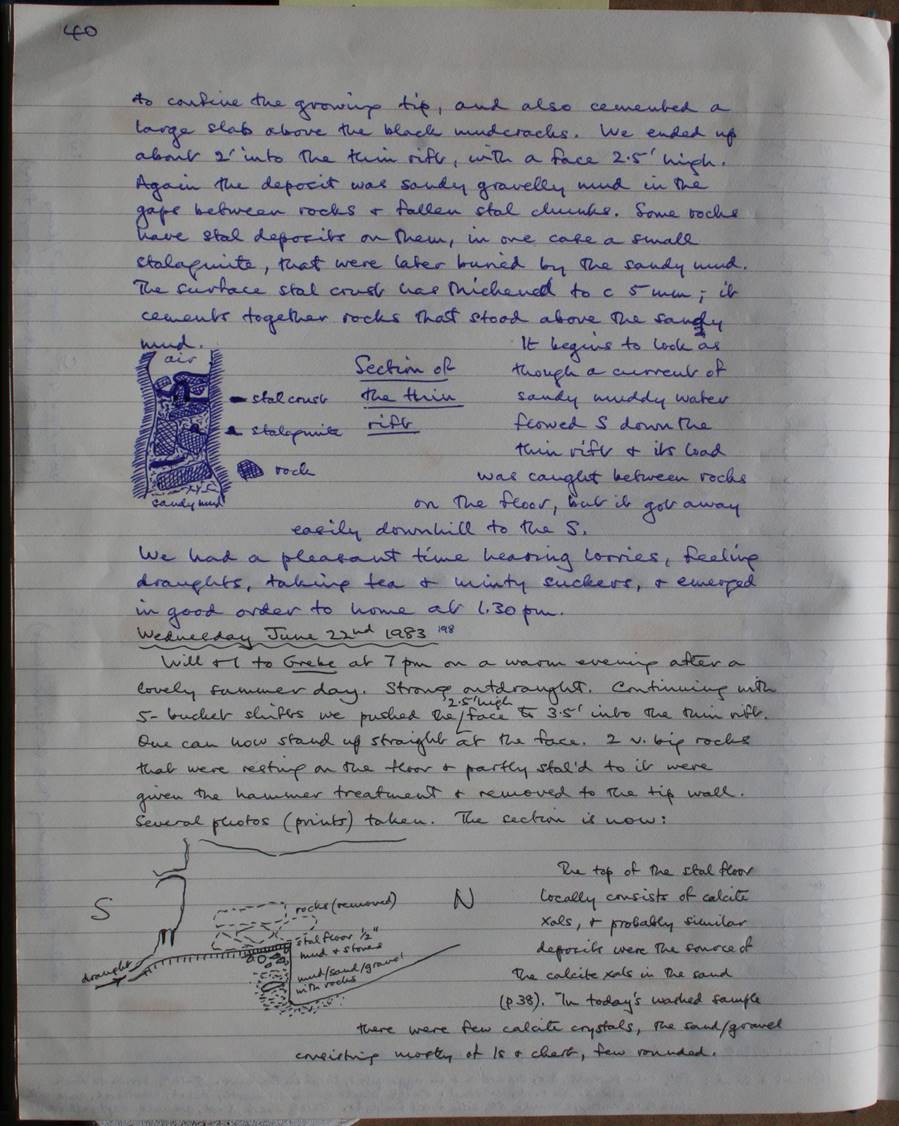 40
to confine the growing tip, and also cemented a
large slab above the black mudcracks. We ended up
about 2' into the thin rift, with a face 2.5' high.
Again the deposit was sandy gravelly mud in the
gaps between rocks & fallen stal chunks. Some rocks
have stal deposits on them, in one case a small
stalagmite, that were later buried by the sandy mud.
The surface stal crust has thickened to c 5 mm; it
cements together rocks that stood above the sandy
mud.
air
stal crust
stalagmite
rock
sandy mud
Section of
the thin
rift
It begins to look as
though a current of
sandy muddy water
flowed S down the
thin rift & its load
was caught between rocks
on the floor, but it got away
easily downhill to the S.
We had a pleasant time hearing lorries, feeling
draughts, taking tea & minty suckers, & emerged
in good order to home at 1.30 pm.
Wednesday June 22nd 1983 198
Will & I to Grebe at 7 pm on a warm evening after a
lovely summer day. Strong outdraught. Continuing with
5-bucket shifts we pushed the 2.5' high face to 3.5' into the thin rift.
One can now stand up straight at the face. 2 v. big rocks
that were resting on the floor & partly stal'd to it were
given the hammer treatment & removed to the tip wall.
Several photos (prints) taken. The section is now:
S
N
rocks (removed)
stal floor ½"
mud & stones
mud/sand/gravel
with rocks
draught
The top of the stal floor
locally consists of calcite
xals, & probably similar
deposits were the source of
the calcite xals in the sand
(p.38). In today's washed sample
there were few calcite crystals, the sand/gravel
consisting mostly of ls & chert, few rounded.